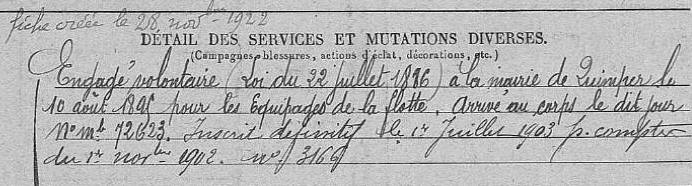 fiche créée le 28 nov^bre 1922
DÉTAIL DES SERVICES ET MUTATIONS DIVERSES.
(Campagnes, blessures, actions d'éclat, décorations, etc.)
Engagé volontaire (Loi du 22 juillet 1886) à la mairie de Quimper le
10 août 1895 pour les Équipages de la flotte. Arrivé au corps le dit jour
N° m^le 72623. Inscrit définitif le 1er Juillet 1903 p. compter
du 1er nov^bre 1902. n° 3166